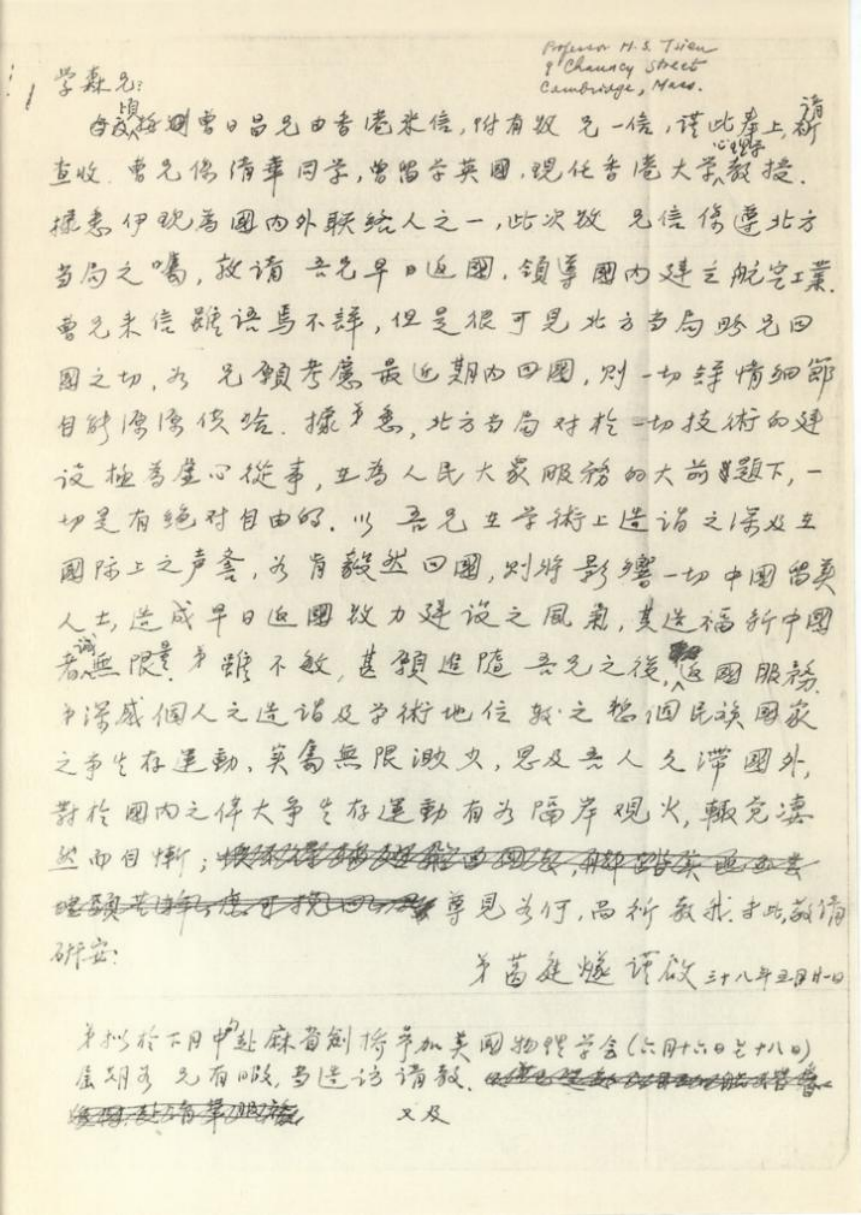 Professor H. S. Tsien
9 Chauncy Street
Cambridge, Mass.
学森兄:
頃接到曹日昌兄由香港来信,附有致 兄一信,谨此奉上,請
查收. 曹兄係清華同学,曾留学英國,現任香港大学心理学教授.
據悉伊現為國内外联络人之一,此次致 兄信係遵北方
当局之嘱,敦请 吾兄早日返國,领導國内建立航空工業.
曹兄来信雖語焉不詳,但是很可見北方当局盼兄回
國之切,如 兄願考慮最近期内回國,则一切详情细節
自能源源供给. 據弟悉,北方当局对於一切技術的建
设極為虚心從事,在為人民大家服務的大前題下,一
切是有绝对自由的. 以 吾兄在学術上造诣之深及在
國际上之声誉,如肯毅然回國,则将影響一切中國留美
人士,造成早日返國致力建设之風氣,其造福新中國
者誠無限量. 弟雖不敏,甚願追隨吾兄之後,返國服務.
弟深感個人之造诣及学術地位較之整個民族国家
之争生存運動,实属無限渺少,思及吾人久滞國外,
對於國内之偉大争生存運動有如隔岸观火,輒覚凄
然而自慚;
尊見如何,尚祈教我. 专此,敬请
研安:
弟葛庭燧谨啟 三十八年五月廿一日
弟拟於下月中旬赴麻省剑桥参加美國物理学会(六月十六日至十八日)
届期如 兄有暇,当造访请教.
又及